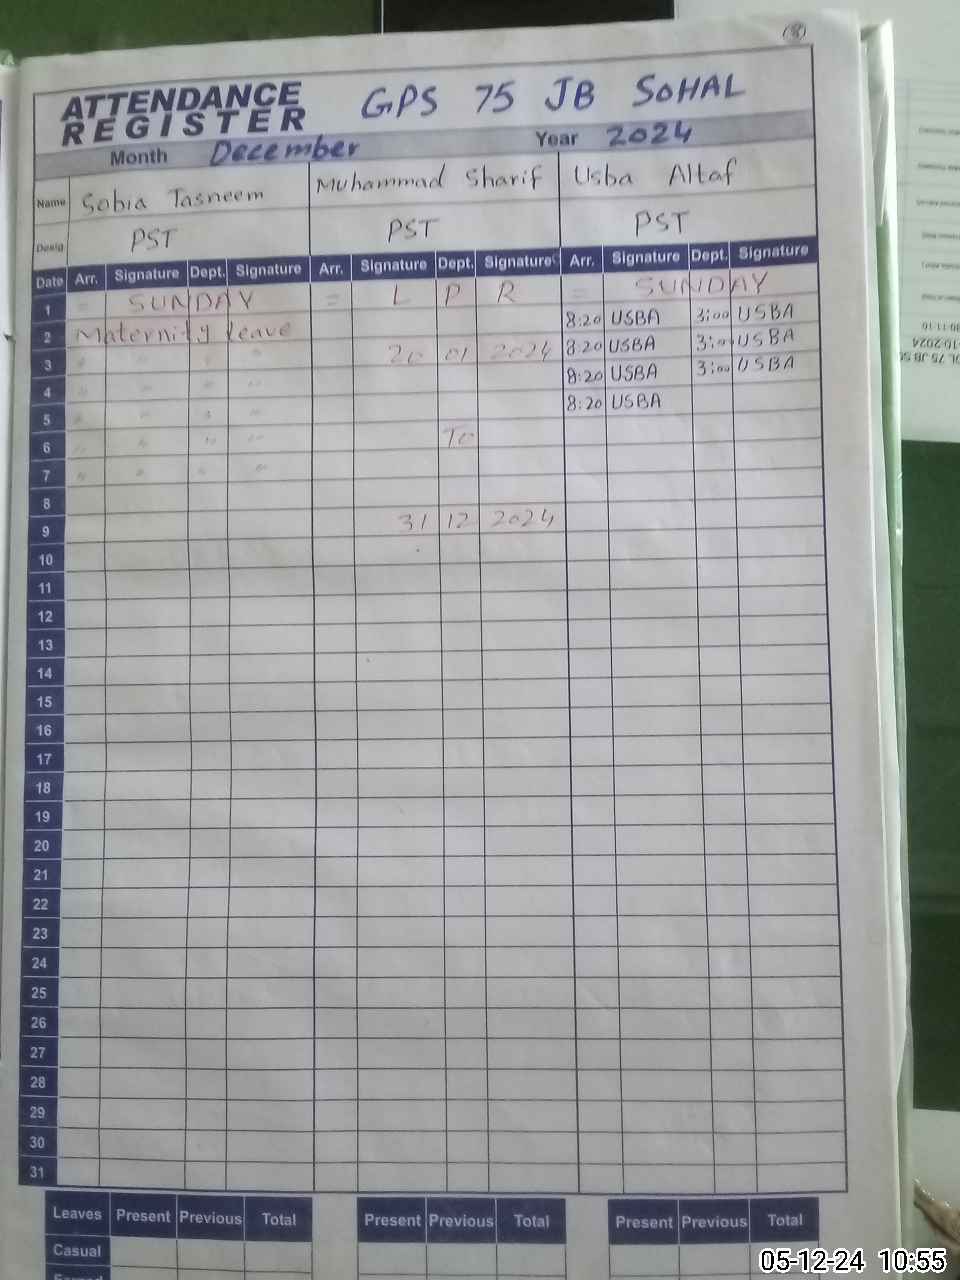 ATTENDANCE REGISTER GPS 75 JB SOHAL
Month December Year 2024
Name Sobia Tasneem Muhammad Sharif Usba Altaf
Desig PST PST PST
Date Arr. Signature Dept. Signature Arr. Signature Dept. Signature Arr. Signature Dept. Signature
1 = SUNDAY = L P R = SUNDAY
2 Maternity leave 8:20 USBA 3:00 USBA
3 " " " " 20 01 2024 8:20 USBA 3:00 USBA
4 " " " " 8:20 USBA 3:00 USBA
5 " " " " 8:20 USBA
6 " " " " To
7 " " " "
8
9 31 12 2024
10
11
12
13
14
15
16
17
18
19
20
21
22
23
24
25
26
27
28
29
30
31
Leaves Present Previous Total Present Previous Total Present Previous Total
Casual
05-12-24 10:55